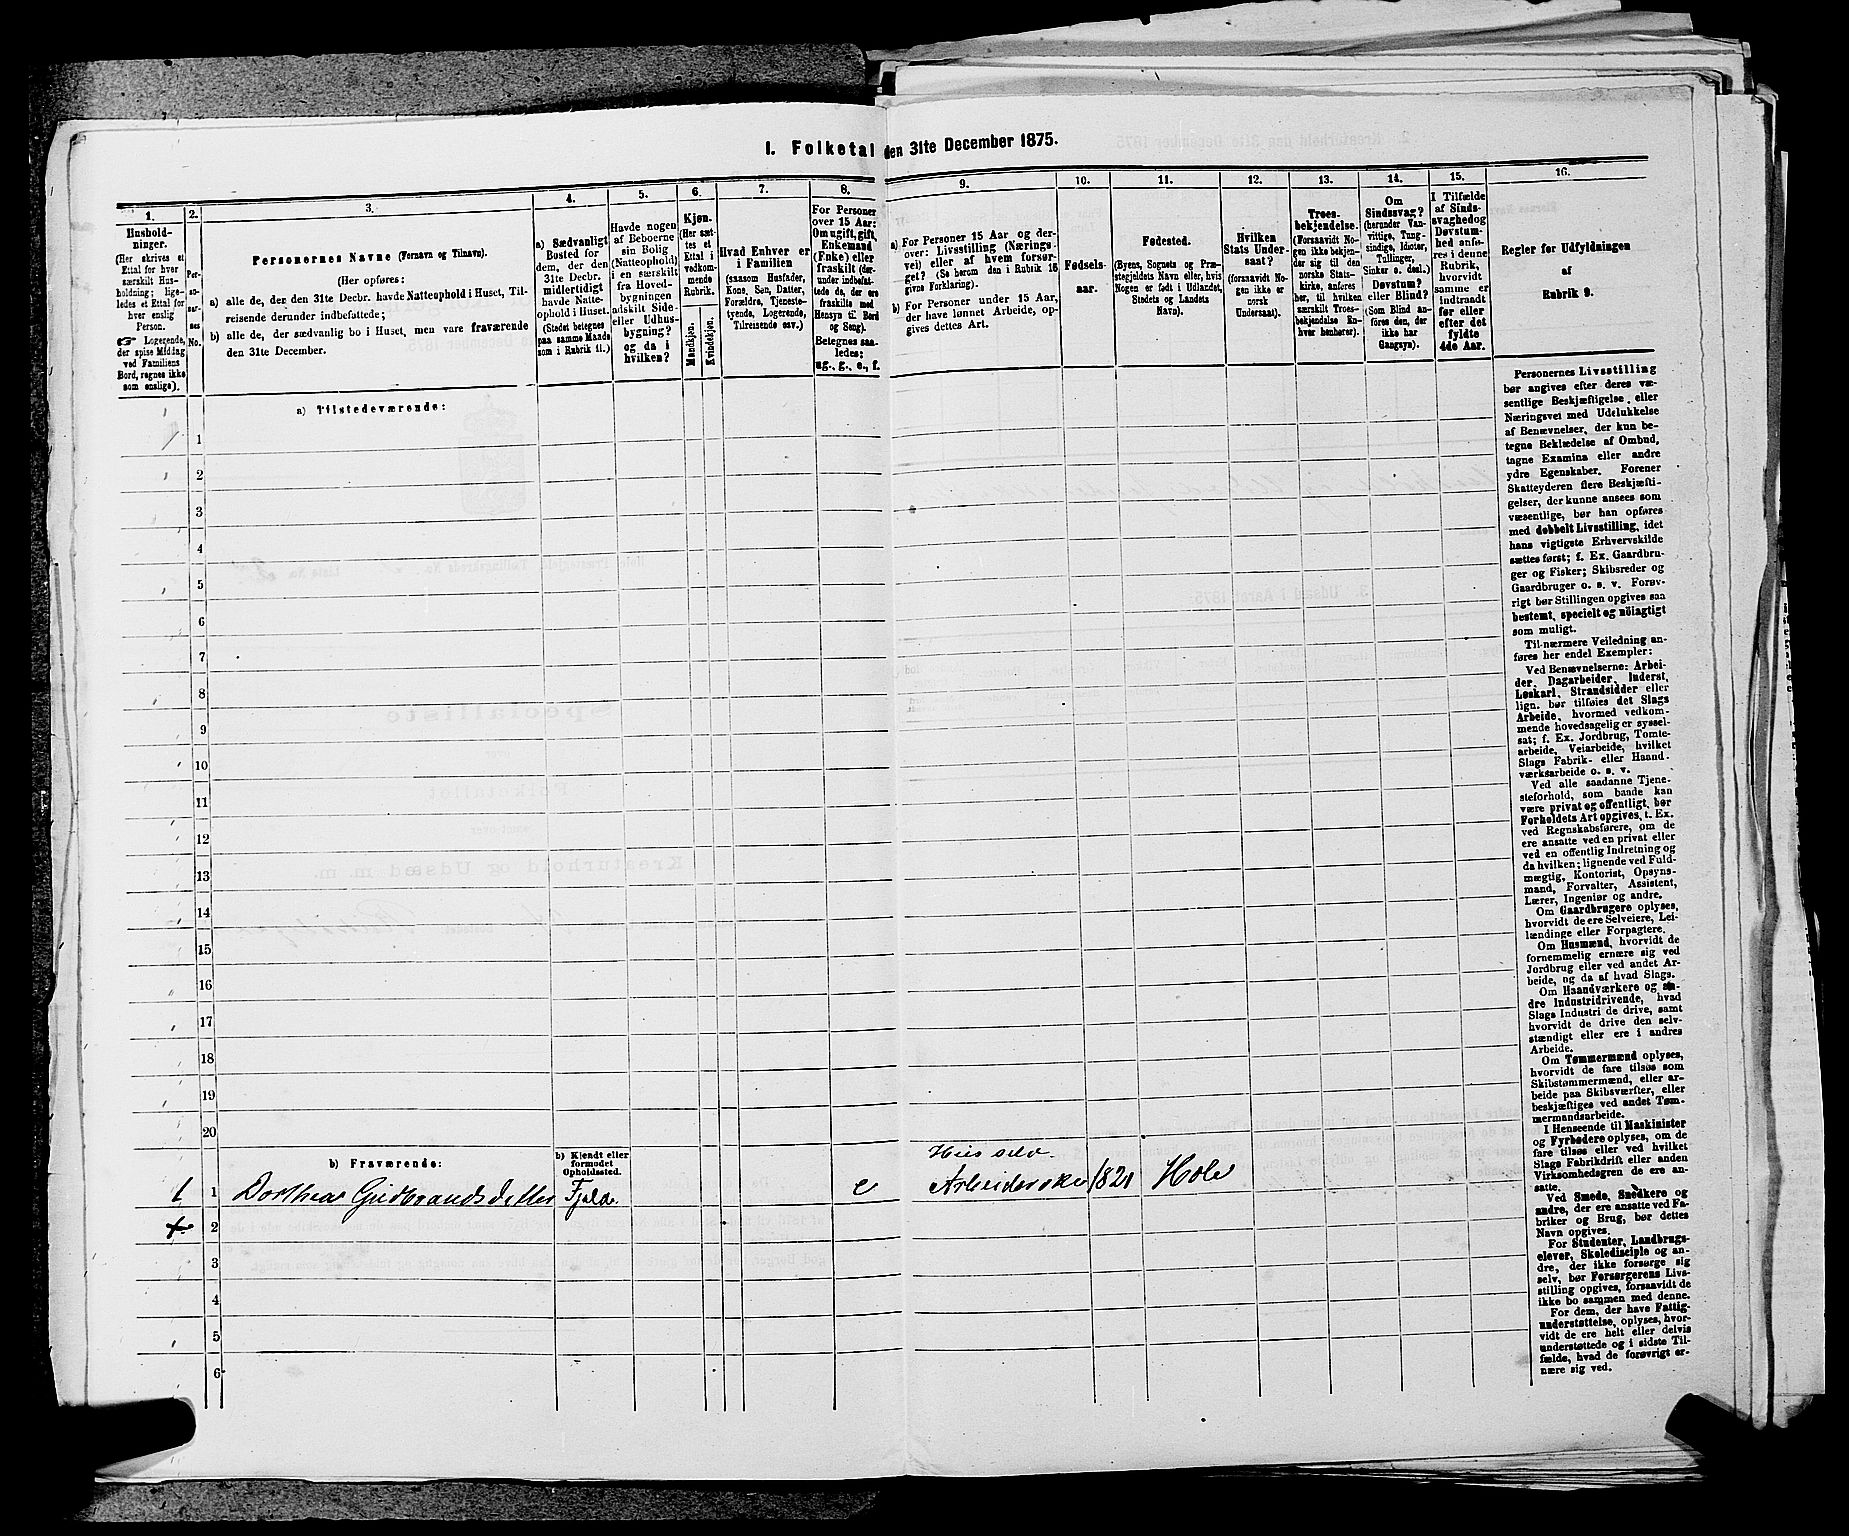 I. Folketal den 31te December 1875.
1.
Hushold-
ninger.
(Her skrives et
Ettal for hver
særskilt Hus-
holdning; lige-
ledes et Ettal for
hver enslig
Person.
☞ Logerende,
der spise Middag
ved Familiens
Bord, regnes ikke
som enslige).
2.
Per-
so-
ner-
nes
No.
3.
Personernes Navne (Fornavn og Tilnavn).
(Her opføres:
a) alle de, der den 31te Decbr. havde Natteophold i Huset, Til-
reisende derunder indbefattede;
b) alle de, der sædvanlig bo i Huset, men vare fraværende
den 31te December.
4.
a) Sædvanligt
Bosted for
dem, der den
31te Decbr.
midlertidigt
havde Natte-
ophold i Huset.
(Stedet betegnes
paa samme Maade
som i Rubrik 11.)
5.
Havde nogen
af Beboerne
sin Bolig
(Natteophold)
i en særskilt
fra Hoved-
bygningen
adskilt Side-
eller Udhus-
bygning?
og da i
hvilken?
6.
Kjøn.
(Her sæt-
tes et
Ettal i
vedkom-
mende
Rubrik.
Mandkjøn.
Kvindekjøn.
7.
Hvad Enhver er
i Familien
(saasom Husfader,
Kone, Søn, Datter,
Forældre, Tjeneste-
tyende, Logerende,
Tilreisende osv.)
8.
For Personer
over 15 Aar:
Om ugift, gift,
Enkemand
(Enke) eller
fraskilt (der-
under indbefat-
tede de, der ere
fraskilte med
Hensyn til Bord
og Seng).
Betegnes saa-
ledes:
ug., g., e., f.
9.
a) For Personer 15 Aar og der-
over: Livsstilling (Nærings-
vei) eller af hvem forsør-
get? (Se herom den i Rubrik 16
givne Forklaring).
b) For Personer under 15 Aar,
der have lønnet Arbeide, op-
gives dettes Art.
10.
Fødsels-
aar.
11.
Fødested.
(Byens, Sognets og Præ-
stegjeldets Navn eller, hvis
Nogen er født i Udlandet,
Stedets og Landets
Navn).
12.
Hvilken
Stats Under-
saat?
(forsaavidt No-
gen ikke er
norsk
Undersaat).
13.
Troes-
bekjendelse.
(Forsaavidt No-
gen ikke bekjen-
der sig til den
norske Stats-
kirke, anføres
her, til hvilken
særskilt Troes-
bekjendelse En-
hver henhører).
14.
Om
Sindssvag?
(herunder Van-
vittige, Tung-
sindige, Idioter,
Tullinger,
Sinker o. desl.)
Døvstum?
eller Blind?
(Som Blind an-
føres den, der
ikke har
Gangsyn).
15.
I Tilfælde
af Sinds-
svaghed og
Døvstum-
hed anfø-
res i denne
Rubrik,
hvorvidt
samme er
indtraadt
før eller
efter det
fyldte
4de Aar.
16.
Regler for Udfyldningen
af
Rubrik 9.
a) Tilstedeværende:
1
2
3
4
5
6
7
8
9
10
11
12
13
14
15
16
17
18
19
20
b) Fraværende:
b) Kjendt eller
formodet
Opholdssted.
Huis selv.
1 1 Dorthea Gudbrandsdatter Fjeld e Arbeiderske 1821 Hole
2
3
4
5
6
Personernes Livsstilling
bør angives efter deres væ-
sentlige Beskjæftigelse eller
Næringsvei med Udelukkelse
af Benævnelser, der kun be-
tegne Beklædelse af Ombud,
tagne Examina eller andre
ydre Egenskaber. Forener
Skatteyderen flere Beskjæfti-
gelser, der kunne ansees som
væsentlige, bør han opføres
med dobbelt Livsstilling, idet
hans vigtigste Erhvervskilde
sættes først; f. Ex. Gaardbru-
ger og Fisker; Skibsreder og
Gaardbruger o. s. v. Forøv-
rigt bør Stillingen opgives saa
bestemt, specielt og nøiagtigt
som muligt.
Til nærmere Veiledning an-
føres her endel Exempler:
Ved Benævnelserne: Arbei-
der, Dagarbeider, Inderst,
Løskarl, Strandsidder eller
lign. bør tilføies det Slags
Arbeide, hvormed vedkom-
mende hovedsagelig er syssel-
sat; f. Ex. Jordbrug, Tomte-
arbeide, Veiarbeide, hvilket
Slags Fabrik- eller Haand-
værksarbeide o. s. v.
Ved alle saadanne Tjene-
steforhold, som baade kan
være privat og offentligt, bør
Forholdets Art opgives, t. Ex.
ved Regnskabsførere, om de
ere ansatte ved en privat eller
ved en offentlig Indretning og
da hvilken; lignende ved Fuld-
mægtig, Kontorist, Opsyns-
mand, Forvalter, Assistent,
Lærer, Ingeniør og andre.
Om Gaardbrugere oplyses,
hvorvidt de ere Selveiere, Lei-
lændinge eller Forpagtere.
Om Husmænd, hvorvidt de
fornemmelig ernære sig ved
Jordbrug eller ved andet Ar-
beide, og da af hvad Slags.
Om Haandværkere og an-
dre Industridrivende, hvad
Slags Industri de drive, samt
hvorvidt de drive den selv-
stændigt eller ere i andres
Arbeide.
Om Tømmermænd oplyses,
hvorvidt de fare tilsøs som
Skibstømmermænd, eller ar-
beide paa Skibsværfter, eller
beskjæftiges ved andet Tøm-
mermandsarbeide.
I Henseende til Maskinister
og Fyrbødere oplyses, om de
fare tilsøs eller ved hvilket
Slags Fabrikdrift eller anden
Virksomhedsgren de ere an-
satte.
Ved Smede, Snedkere og
andre, der ere ansatte ved Fa-
briker og Brug, bør dettes
Navn opgives.
For Studenter, Landbrugs-
elever, Skoledisciple og an-
dre, der ikke forsørge sig
selv, bør Forsørgerens Livs-
stilling opgives, forsaavidt de
ikke bo sammen med denne.
For dem, der have Fattig-
understøttelse, oplyses, hvor-
vidt de ere helt eller delvis
understøttede og i sidste Til-
fælde, hvad de forøvrigt er-
nære sig ved.